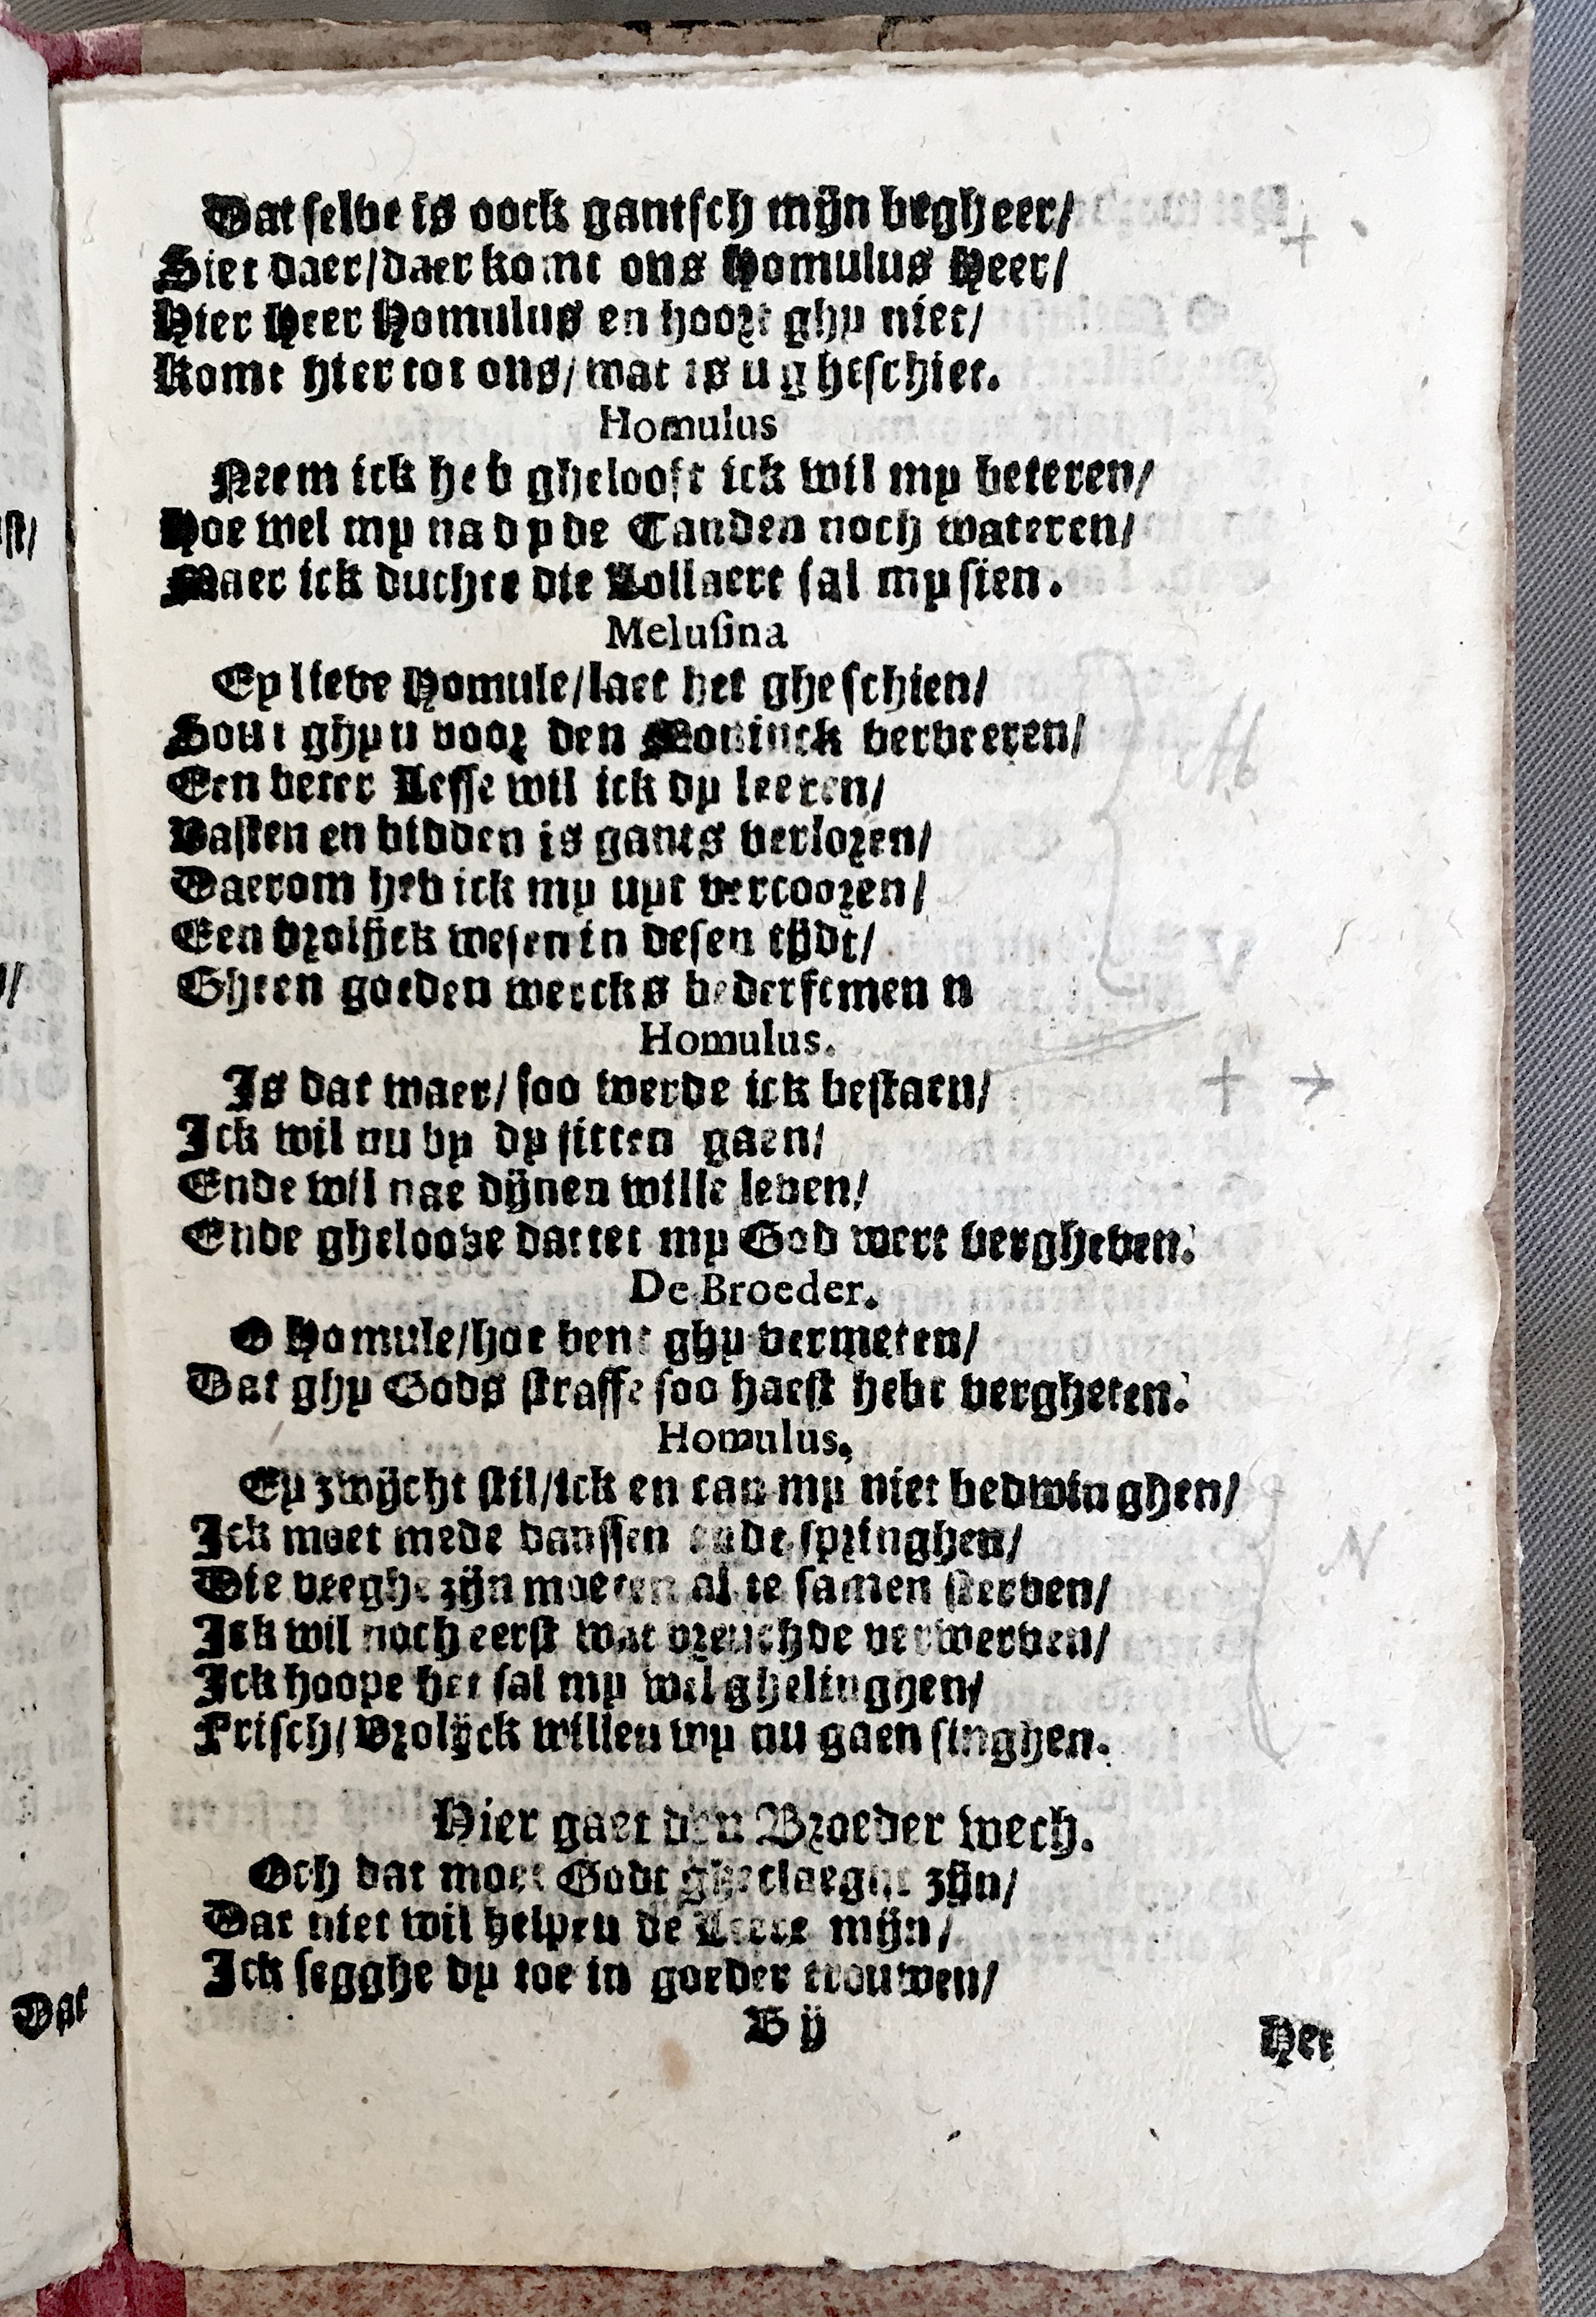 Dat selve is oock gantsch mijn begheer/
Siet daer/daer komt ons Homulus Heer/
Hier Heer Homulus en hoort ghy niet/
Komt hier tot ons/wat is u gheschiet.
Homulus
Neem ick heb ghelooft ick wil my beteren/
Hoe wel my na dy de Tanden noch wateren/
Maer ick duchte die Lollaert sal my sien.
Melusina
Ey lieve Homule/laet het gheschien/
Sout ghy u voor den Moninck verveeren/
Een beter Lesse wil ick dy leeren/
Vasten en bidden is gants verloren/
Daerom heb ick my uyt vercooren/
Een vrolijck wesen in desen tijdt/
Gheen goeden wercks bederftmen n
Homulus.
Is dat waer/soo werde ick bestaen/
Ick wil nu by dy sitten gaen/
Ende wil nae dijnen wille leven/
Ende gheloove dattet my God wert vergheven.
De Broeder.
O Homule/hoe bent ghy vermeten/
Dat ghy Gods straffe soo haest hebt vergheten.
Homulus.
Ey zwijcht stil/ick en can my niet bedwinghen/
Ick moet mede danssen ende springhen/
Die veeghe zijn moeten al te samen sterven/
Ick wil noch eerst wat vreuchde verwerven/
Ick hoope het sal my wel ghelinghen/
Frisch/Vrolijck willen wy nu gaen singhen.
Hier gaet den Broeder wech.
Och dat moet Godt gheclaeght zijn/
Dat niet wil helpen de Leere mijn/
Ick segghe dy toe in goeder trouwen/
B ij
Het
st/
Dat